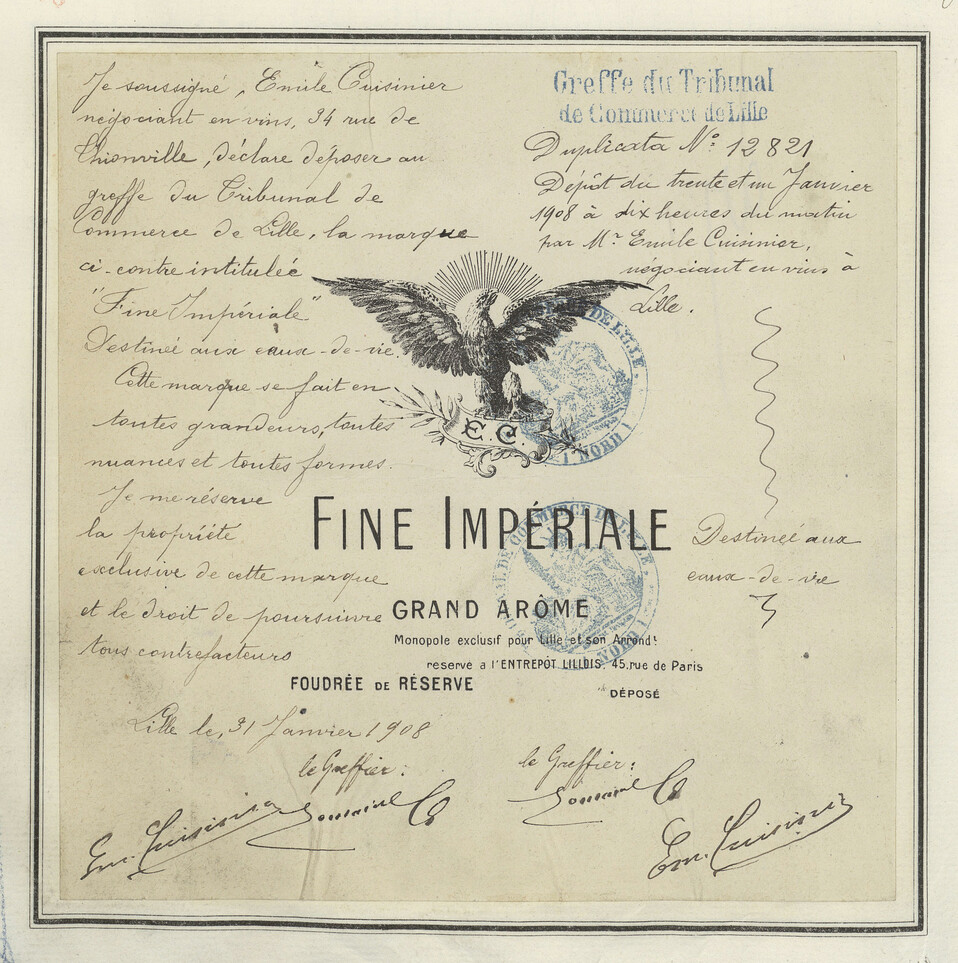 Je soussigné, Emile Cuisinier
négociant en vins, 34 rue de
Thionville, déclare déposer au
greffe du Tribunal de
Commerce de Lille, la marque
ci-contre intitulée
"Fine Impériale"
Destinée aux eaux-de-vie.
Cette marque se fait en
toutes grandeurs, toutes
nuances et toutes formes.
Je me réserve
la propriété
exclusive de cette marque
et le droit de poursuivre
tous contrefacteurs
Lille le, 31 Janvier 1908
le Greffier:
Em. Cuisinier
Greffe du Tribunal
de Commerce de Lille
Duplicata No: 12821
Dépôt du trente et un Janvier
1908 à dix heures du matin
par Mr Emile Cuisinier,
négociant en vins à
Lille.
Destinée aux
eaux-de-vie
E.C.
FINE IMPÉRIALE
GRAND ARÔME
Monopole exclusif pour Lille et son Arrondt
réservé a l'ENTREPÔT LILLOIS, 45, rue de Paris
FOUDRÉE DE RÉSERVE
DÉPOSÉ
DE LILLE
( NORD )
DE COMMERCE DE LILLE
( NORD )
le Greffier:
Em. Cuisinier